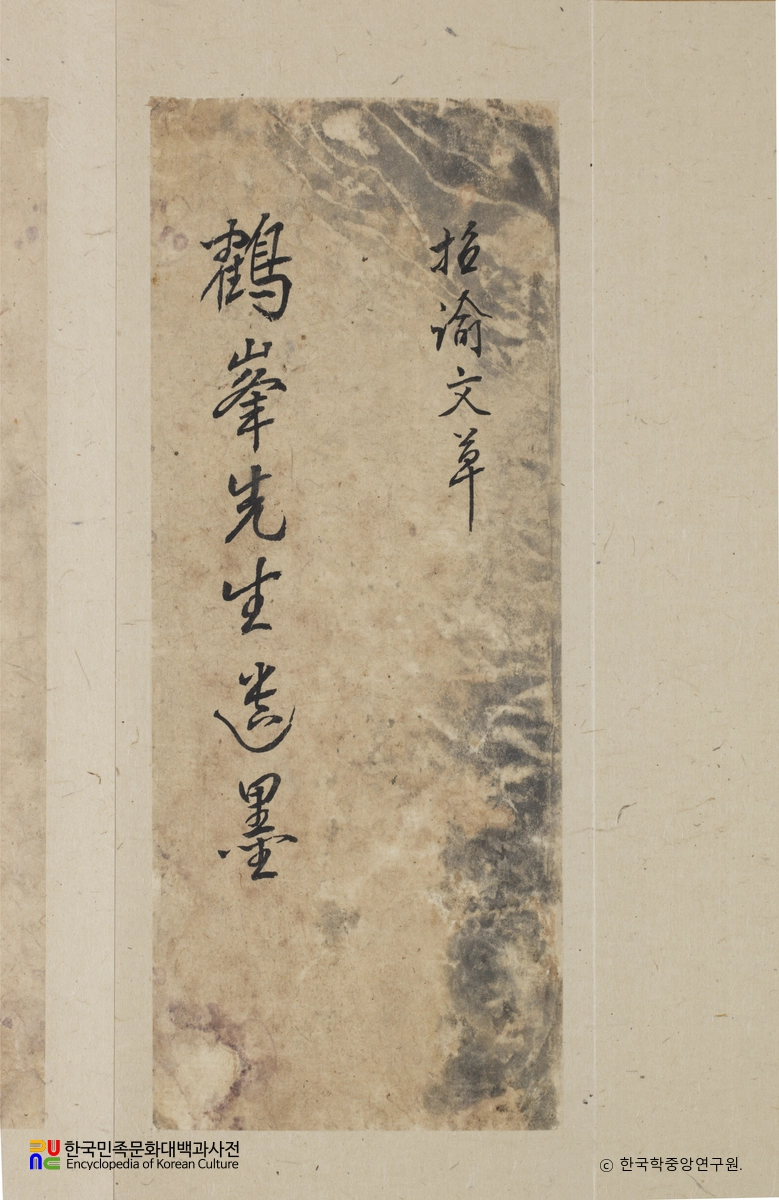 招諭文草
鶴峯先生遺墨
한국민족문화대백과사전
Encyclopedia of Korean Culture
ⓒ 한국학중앙연구원.